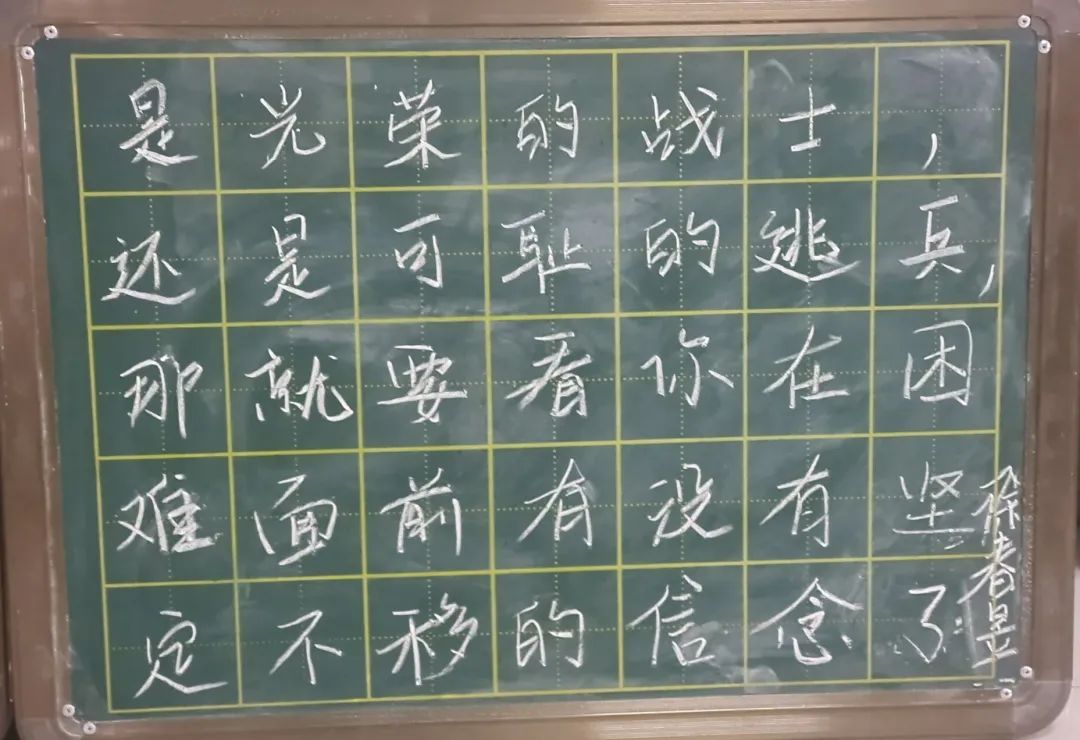 是光荣的战士，
还是可耻的逃兵，
那就要看你在困
难面前有没有坚
定不移的信念了